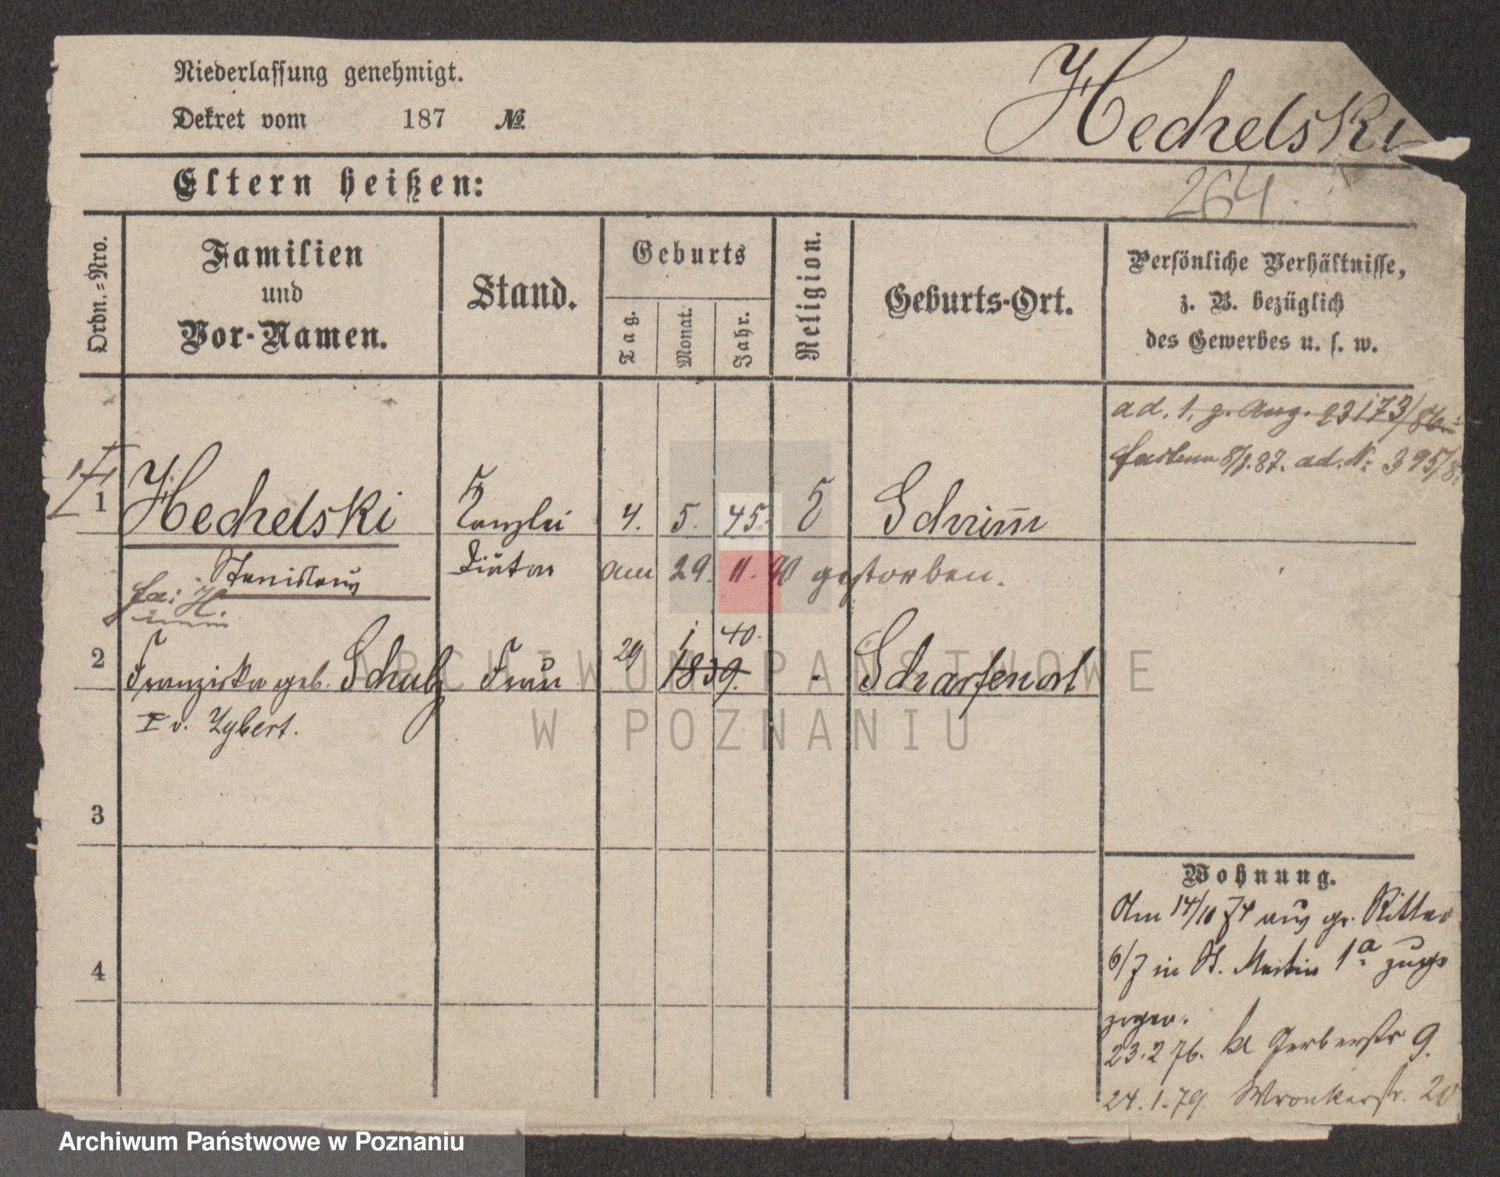 Niederlassung genehmigt.
Dekret vom 187 №
Hechelski
264.
Eltern heißen:
Ordn.=Nro.
Familien
und
Vor-Namen.
Stand.
Geburts
Tag.
Monat.
Jahr.
Religion.
Geburts-Ort.
Persönliche Verhältnisse,
z. B. bezüglich
des Gewerbes u. s. w.
ad. 1. g. Aug. 23173/86
8/1.87. ad. N: 395/8
1 Hechelski Kanzlei 4. 5. 45. Schrimm
Stanislaus Diätar am 29. 11. 90 gestorben.
2 Franziska geb. Schulz Frau 29 1 40. 1839. - Scharfenort
I v. Zybert.
3
4
Wohnung.
Am 14/11 74 aus gr. Ritter
6/7 in St. Martin 1a
zogen.
23.2 76. kl Gerberstr 9.
24.1.79 Wronkerstr. 20
ARCHIWUM PAŃSTWOWE
W POZNANIU
Archiwum Państwowe w Poznaniu